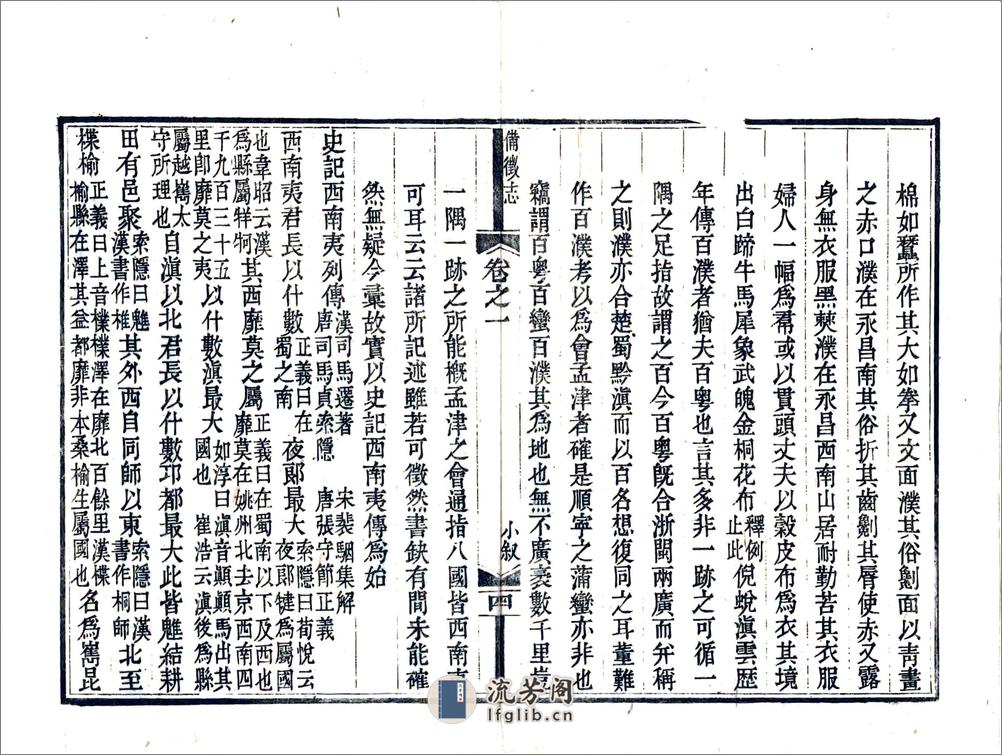 棉如蠶所作其大如拳又文面濮其俗劖面以青畫
之赤口濮在永昌南其俗折其齒劖其脣使赤又露
身無衣服黑僰濮在永昌西南山居耐勤苦其衣服
婦人一幅爲帬或以貫頭丈夫以穀皮布爲衣其境
出白蹄牛馬犀象武魄金桐花布釋例止此倪蛻滇雲歴
年傳百濮者猶夫百粵也言其多非一跡之可循一
隅之足指故謂之百今百粵旣合浙閩兩廣而幷稱
之則濮亦合楚蜀黔滇而以百名想復同之耳董難
作百濮考以爲會孟津者確是順寧之蒲蠻亦非也
竊謂百粵百蠻百濮其爲地也無不廣袤數千里豈
一隅一跡之所能槪孟津之會通指八國皆西南夷
可耳云云諸所記述雖若可徵然書缺有間未能確
然無疑今彙故實以史記西南夷傳爲始
史記西南夷列傳漢司馬遷著 宋裴駰集解 唐司馬貞索隱 唐張守節正義
西南夷君長以什數正義曰在蜀之南夜郎最大索隱曰荀悅云夜郎犍爲屬國
也韋昭云漢爲縣屬牂牁其西靡莫之屬正義曰在蜀南以下及西也靡莫在姚州北去京西南四
千九百三十五里卽靡莫之夷以什數滇最大如淳曰滇音顚顚馬出其國也 崔浩云滇後爲縣
屬越巂太守所理也自滇以北君長以什數邛都最大此皆魋結耕
田有邑聚索隱曰魋漢書作椎其外西自同師以東索隱曰漢書作桐師北至
楪榆正義曰上音楪楪澤在靡北百餘里漢楪榆縣在澤其益都靡非本桑榆生屬國也名爲巂昆
備徵志
卷之一
小叙
四
流芳阁
lfglib.cn